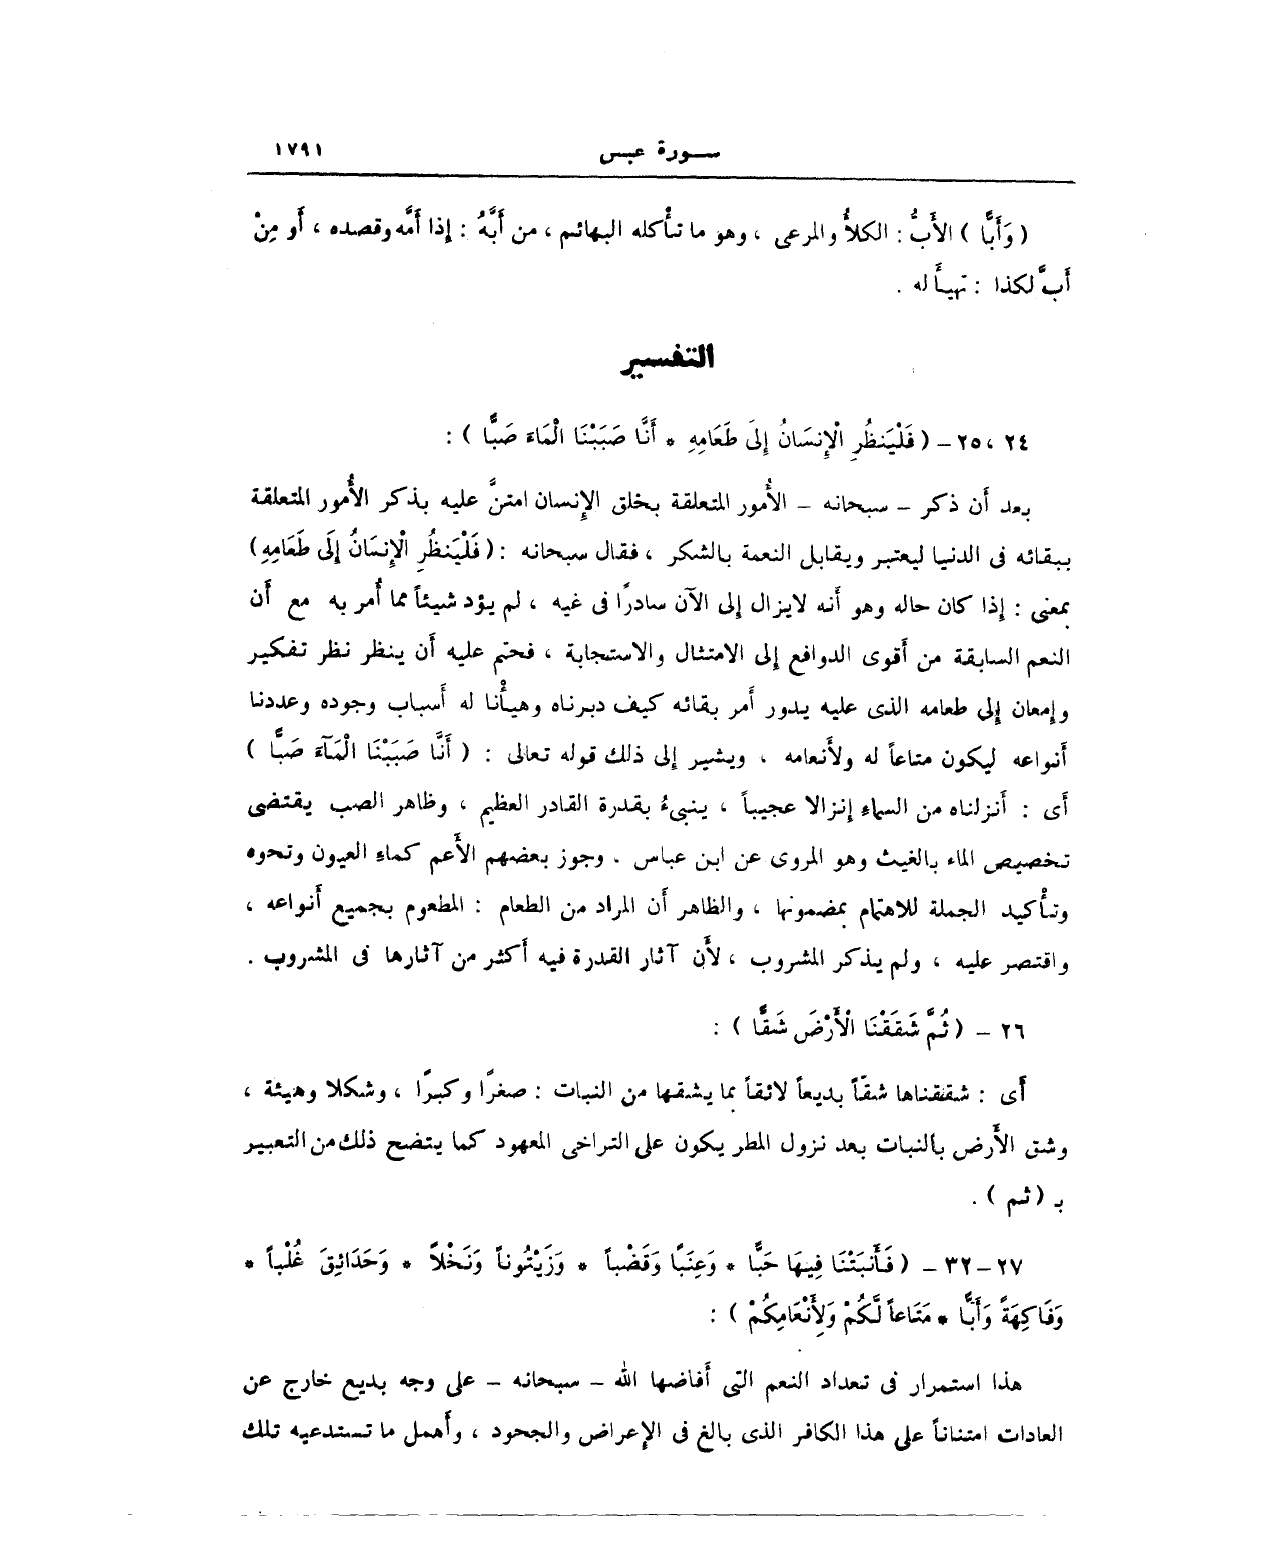 سورة عبس ١٧٩١
( وَأَبًّا ) الأَبُّ : الكلأُ والمرعى ، وهو ما تأْكله البهائم ، من أَبَّهُ : إذا أَمَّه وقصده ، أَو مِنْ
أَبَّ لكذا : تهيأَ له .
التفسير
٢٤ ، ٢٥ – ( فَلْيَنظُرِ الْإِنسَانُ إِلَىٰ طَعَامِهِ * أَنَّا صَبَبْنَا الْمَاءَ صَبًّا ) :
بعد أن ذكر – سبحانه – الأُمور المتعلقة بخلق الإِنسان امتنَّ عليه بذكر الأُمور المتعلقة
ببقائه فى الدنيا ليعتبر ويقابل النعمة بالشكر ، فقال سبحانه : ( فَلْيَنظُرِ الْإِنسَانُ إِلَى طَعَامِهِ )
بمعنى : إذا كان حاله وهو أَنه لايزال إلى الآن سادرًا فى غيه ، لم يؤد شيئاً مما أُمر به مع أَن
النعم السابقة من أَقوى الدوافع إلى الامتثال والاستجابة ، فحتم عليه أَن ينظر نظر تفكير
وإمعان إلى طعامه الذى عليه يدور أَمر بقائه كيف دبرناه وهيأْنا له أَسباب وجوده وعددنا
أَنواعه ليكون متاعاً له ولأَنعامه ، ويشير إلى ذلك قوله تعالى : ( أَنَّا صَبَبْنَا الْمَآءَ صَبًّا )
أَى : أَنزلناه من السماءِ إنزالا عجيباً ، ينبىءُ بقدرة القادر العظيم ، وظاهر الصب يقتضى
تخصيص الماء بالغيث وهو المروى عن ابن عباس . وجوز بعضهم الأَعم كماءِ العيون ونحوه
وتأْكيد الجملة للاهتمام بمضمونها ، والظاهر أَن المراد من الطعام : المطعوم بجميع أَنواعه ،
واقتصر عليه ، ولم يذكر المشروب ، لأَن آثار القدرة فيه أَكثر من آثارها فى المشروب .
٢٦ – ( ثُمَّ شَقَقْنَا الْأَرْضَ شَقًّا ) :
أَى : شققناها شقّاً بديعاً لائقاً بما يشقها من النبات : صغرًا وكبرًا ، وشكلا وهيئة ،
وشق الأَرض بالنبات بعد نزول المطر يكون على التراخى المعهود كما يتضح ذلك من التعبير
بـ ( ثم ) .
٢٧–٣٢ – ( فَأَنبَتْنَا فِيهَا حَبًّا * وَعِنَبًا وَقَضْباً * وَزَيْتُوناً وَنَخْلاً * وَحَدَائِقَ غُلْباً *
وَفَاكِهَةً وَأَبًّا * مَتَاعاً لَّكُمْ وَلِأَنْعَامِكُمْ ) :
هذا استمرار فى تعداد النعم التى أَفاضها الله – سبحانه – على وجه بديع خارج عن
العادات امتناناً على هذا الكافر الذى بالغ فى الإِعراض والجحود ، وأَهمل ما تستدعيه تلك